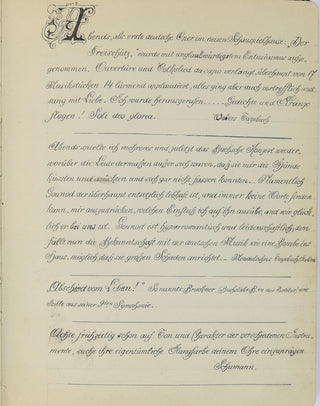 Abends, als erste deutsche Oper im neuen Schauspielhause: „Der
Freischütz", wurde mit unglaubwürdigstem Entusiasmus aufge-
nommen. Ouvertüre und Volkslied da capo verlangt, überhaupt von 17
Musikstücken 14 lärmend applaudiert, alles ging aber auch vortrefflich und
sang mit Liebe. Ich wurde herausgerufen ..... Gedichte und Kränze
flogen! Soli deo gloria. Webers Tagebuch
Abends spielte ich mehreres und zuletzt das Bachsche Konzert wieder,
worüber die Leute dermaßen außer sich waren, daß sie mir die Hände
küssten und drückten und sich gar nicht fassen konnten. Namentlich
Gounod der überhaupt entsetzlich lebhaft ist, und immer keine Worte finden
kann, mir auszudrücken, welchen Einfluß ich auf ihn ausübe, und wie glück-
lich er bei uns ist. Gounod ist hyperromantisch und leidenschaftlich, dem
fällt nun die Bekanntschaft mit der deutschen Musik wie eine Bombe ins
Haus, möglich daß sie großen Schaden anrichtet.
„Abschied vom Leben!" So nannte Bruckner (Buchstabe B. in der Partitur) eine
Stelle aus seiner 9ten Symphonie.
Achte frühzeitig schon auf Ton und Charakter der verschiedenen Instru-
mente, suche ihre eigentümliche Klangfarbe deinem Ohre einzuprägen
Schumann.